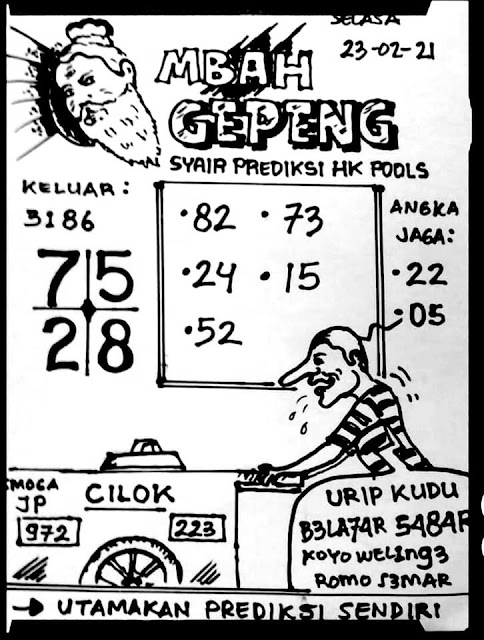 SELASA
23-02-21
MBAH
GEPENG
SYAIR PREDIKSI HK POOLS
KELUAR:
3186
75
28
•82 •73
•24 •15
•52
ANGKA
JAGA:
•22
•05
SMOGA
JP
972
CILOK
223
URIP KUDU
B3LA7AR 5484R
KOYO WEL1ng3
ROMO S3MAR
→ UTAMAKAN PREDIKSI SENDIRI